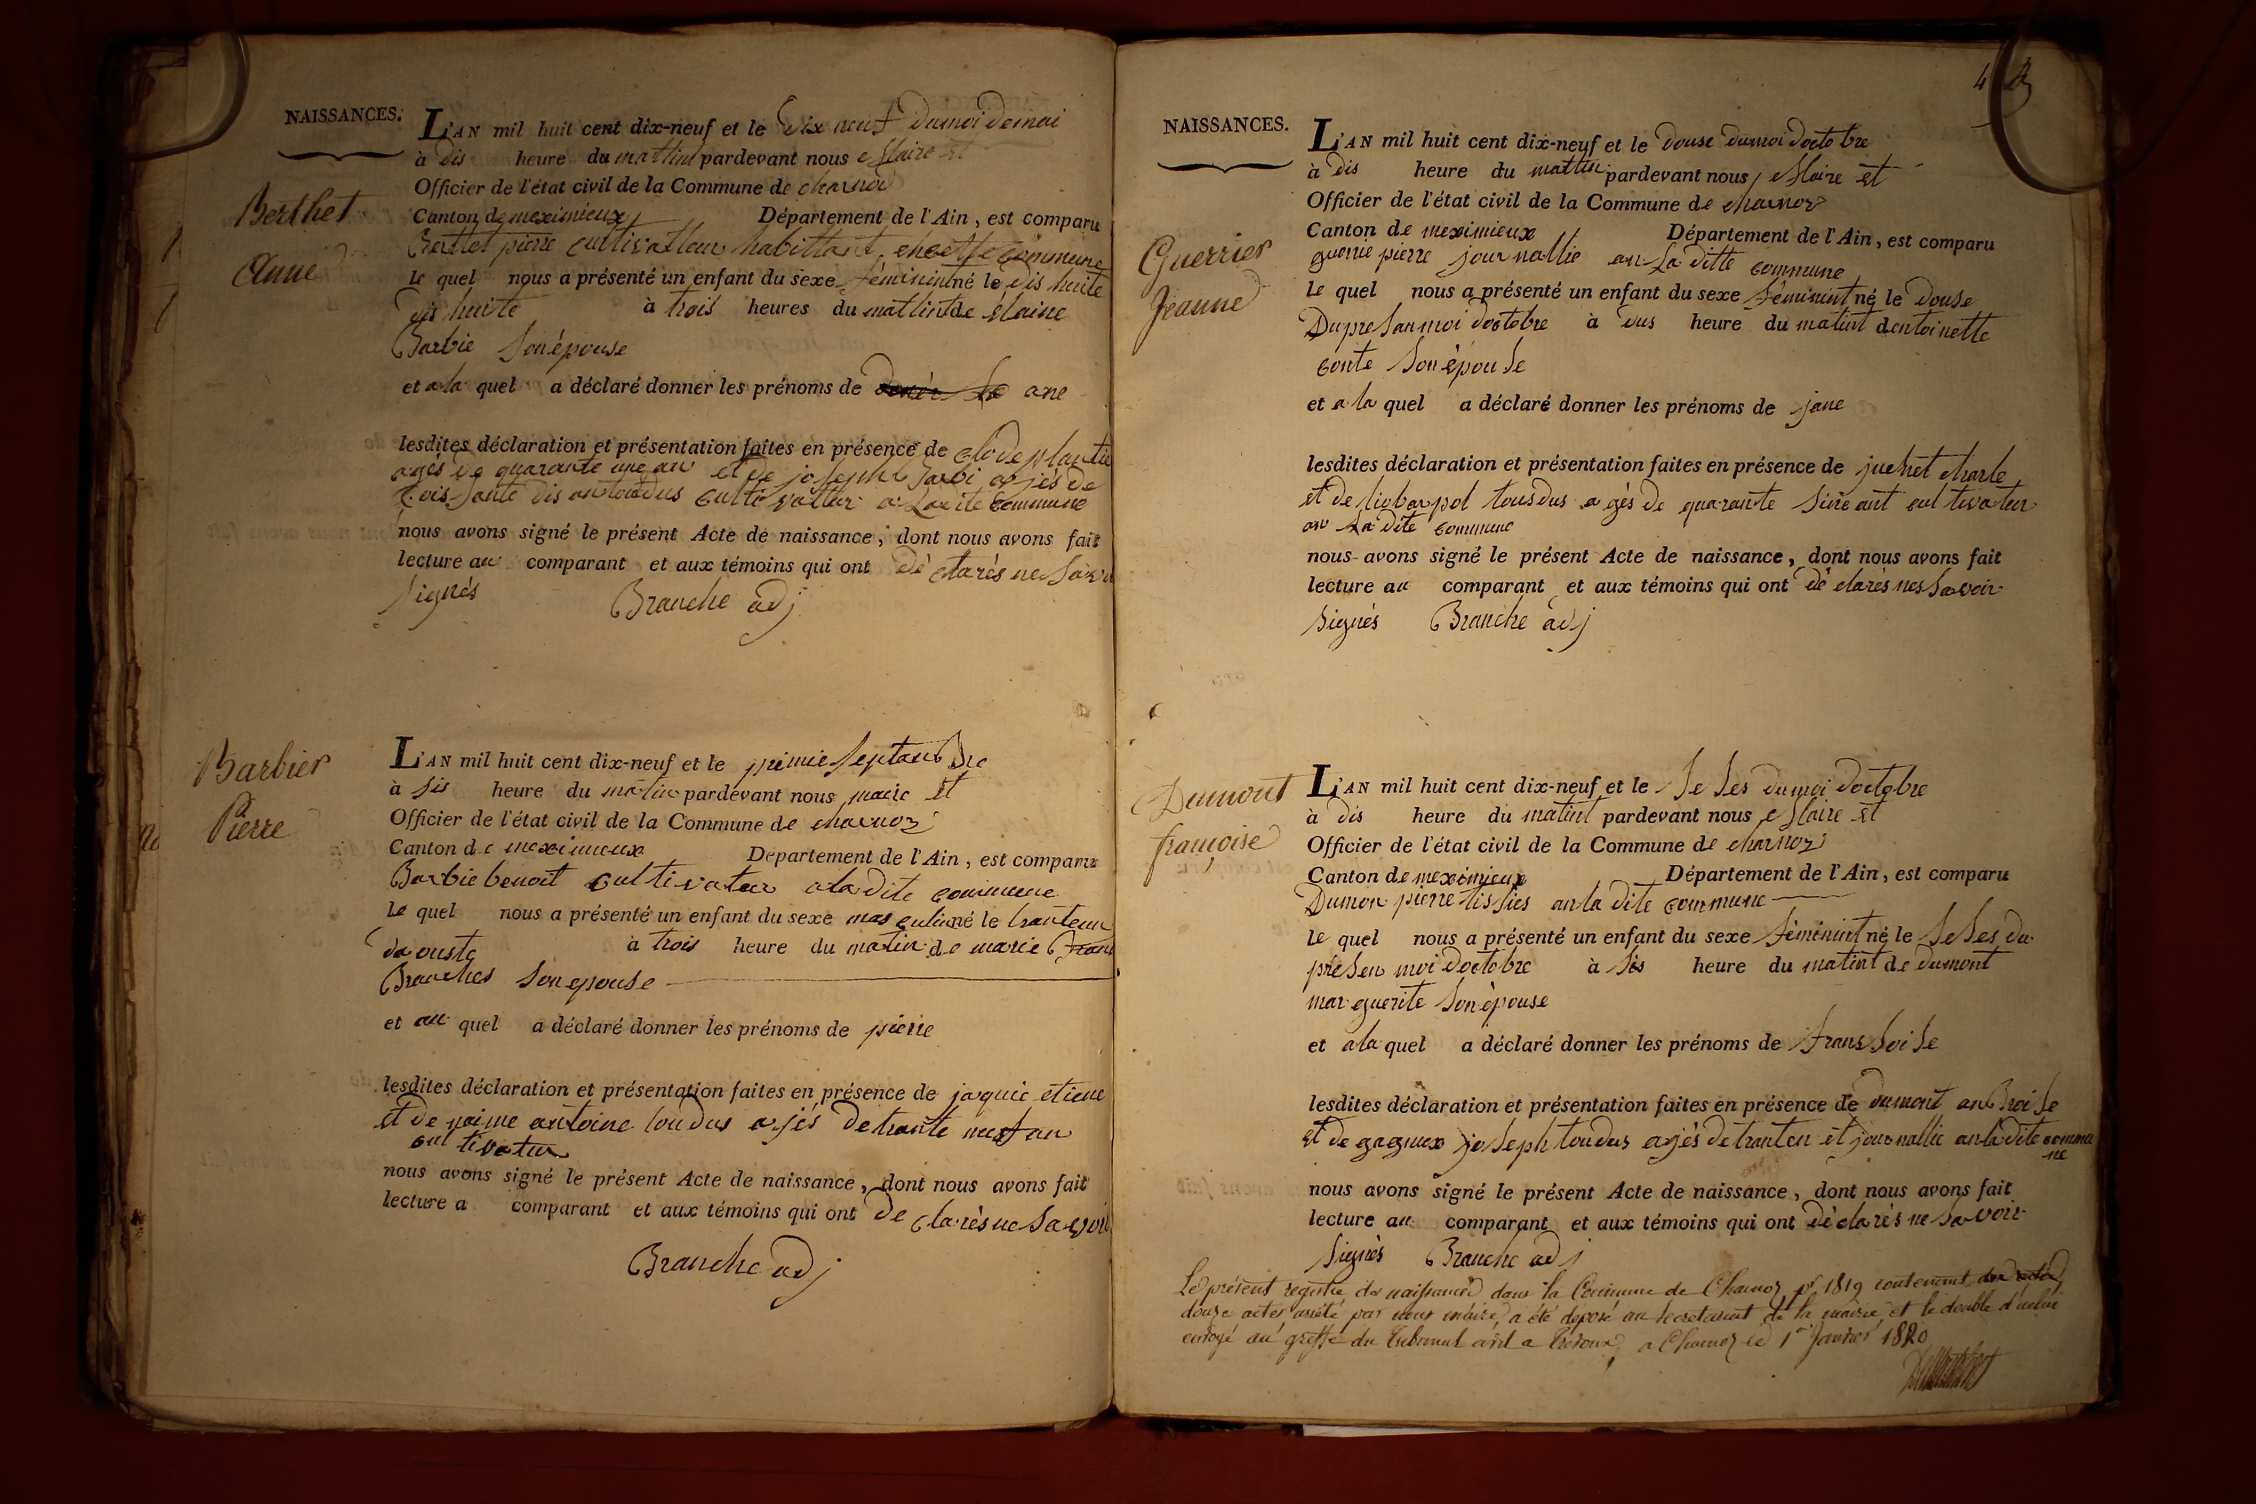 NAISSANCES.
L'AN mil huit cent dix-neuf et le dix neuf dumoi demai
à dis heure du mattint pardevant nous Maire et
Officier de l'état civil de la Commune de charnoz
Berthet
Anne
Canton de meximieux Département de l'Ain, est comparu
Bertlet pierre cultivatteur habittant
commune
Le quel nous a présenté un enfant du sexe féminint né le dis huite
dis huite à trois heures du mattint de Claine
Barbie Son épouse
et a la quel a déclaré donner les prénoms de ane
lesdites déclaration et présentation faites en présence de clode plantie
agés de quarante une an et de joseph Barbi ajés de
Soissante dis an toudus cultivatteur a Ladite Commune
nous avons signé le présent Acte de naissance, dont nous avons fait
lecture au comparant et aux témoins qui ont dé clarés ne Savoir
Signés Branche adj
Barbier
Pierre
L'AN mil huit cent dix-neuf et le premie Septanbre
à sis heure du matin pardevant nous maire et
Officier de l'état civil de la Commune de charnoz
Canton de meximieux Département de l'Ain, est comparu
Barbie benoit cultivateur a la dite commune
Le quel nous a présenté un enfant du sexe masculin né le tranteun
daouste à trois heure du matin de marie Bran
Branches Son epouse
et au quel a déclaré donner les prénoms de pierre
lesdites déclaration et présentation faites en présence de jaquie etiene
et de antoine toudus ajés de trante neuf an
cultivateur
nous avons signé le présent Acte de naissance, dont nous avons fait
lecture a comparant et aux témoins qui ont dé clarés ne Savoir
Branche adj
4
NAISSANCES.
L'AN mil huit cent dix-neuf et le douse dumoi doctobre
à dis heure du mattin pardevant nous Maire et
Officier de l'état civil de la Commune de charnoz
Guerrier
Jeanne
Canton de meximieux Département de l'Ain, est comparu
guerrie pierre journallie an La ditte commune
Le quel nous a présenté un enfant du sexe féminint né le douse
Dupresanmoi doctobre à dus heure du matint dentoinette
conte Son épouse
et a la quel a déclaré donner les prénoms de jane
lesdites déclaration et présentation faites en présence de juenet charle
et de pol tousdus agés de quarante an cultivateur
an La dite commune
nous avons signé le présent Acte de naissance, dont nous avons fait
lecture au comparant et aux témoins qui ont dé clarés nes Savoir
Signés Branche adj
Dumont
françoise
L'AN mil huit cent dix-neuf et le Se Ses dumoi doctobre
à dis heure du matint pardevant nous Maire et
Officier de l'état civil de la Commune de charnoz
Canton de meximieux Département de l'Ain, est comparu
Dumon pierre tissies an la dite commune
Le quel nous a présenté un enfant du sexe féminint né le Se Ses du
présen moi doctobre à sis heure du matint de dumont
marguerite Son épouse
et a la quel a déclaré donner les prénoms de fransSoiSe
lesdites déclaration et présentation faites en présence de dumont anbroiSe
et de gagneux joSeph toudus ajés de tranten et journallie an la dite commu
ne
nous avons signé le présent Acte de naissance, dont nous avons fait
lecture au comparant et aux témoins qui ont dé clarés ne Savoir
Signés Branche adj
Le présent registre de naissance dans la Commune de Charnoz pr 1819 contenant
douze actes arrêté par nous maire, a été déposé au secretariat de la mairie, et le double d'icelui
envoyé au greffe du tribunal civil a trevoux, a Charnoz le 1er Janvier 1820